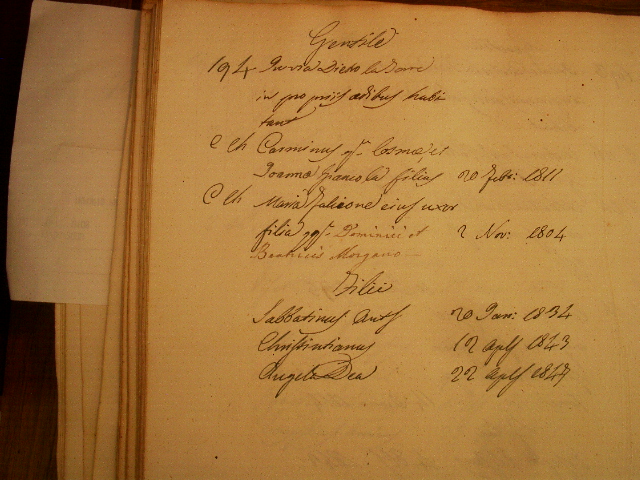 Gentile
194 In via Dieto la Torre
in propriis ædibus habi
tant
C Ch Carminus qm Cosmæ, et
Joannæ Giancola filius 20 Feb: 1811
C Ch Maria Falcone ejus uxor
filia qm Dominici et 2 Nov: 1804
Beatricis Morgano
Filii
Sabbatinus Ants 20 Jan: 1834
Christintianus 12 apls 1843
Angela Dea 22 apls 1847